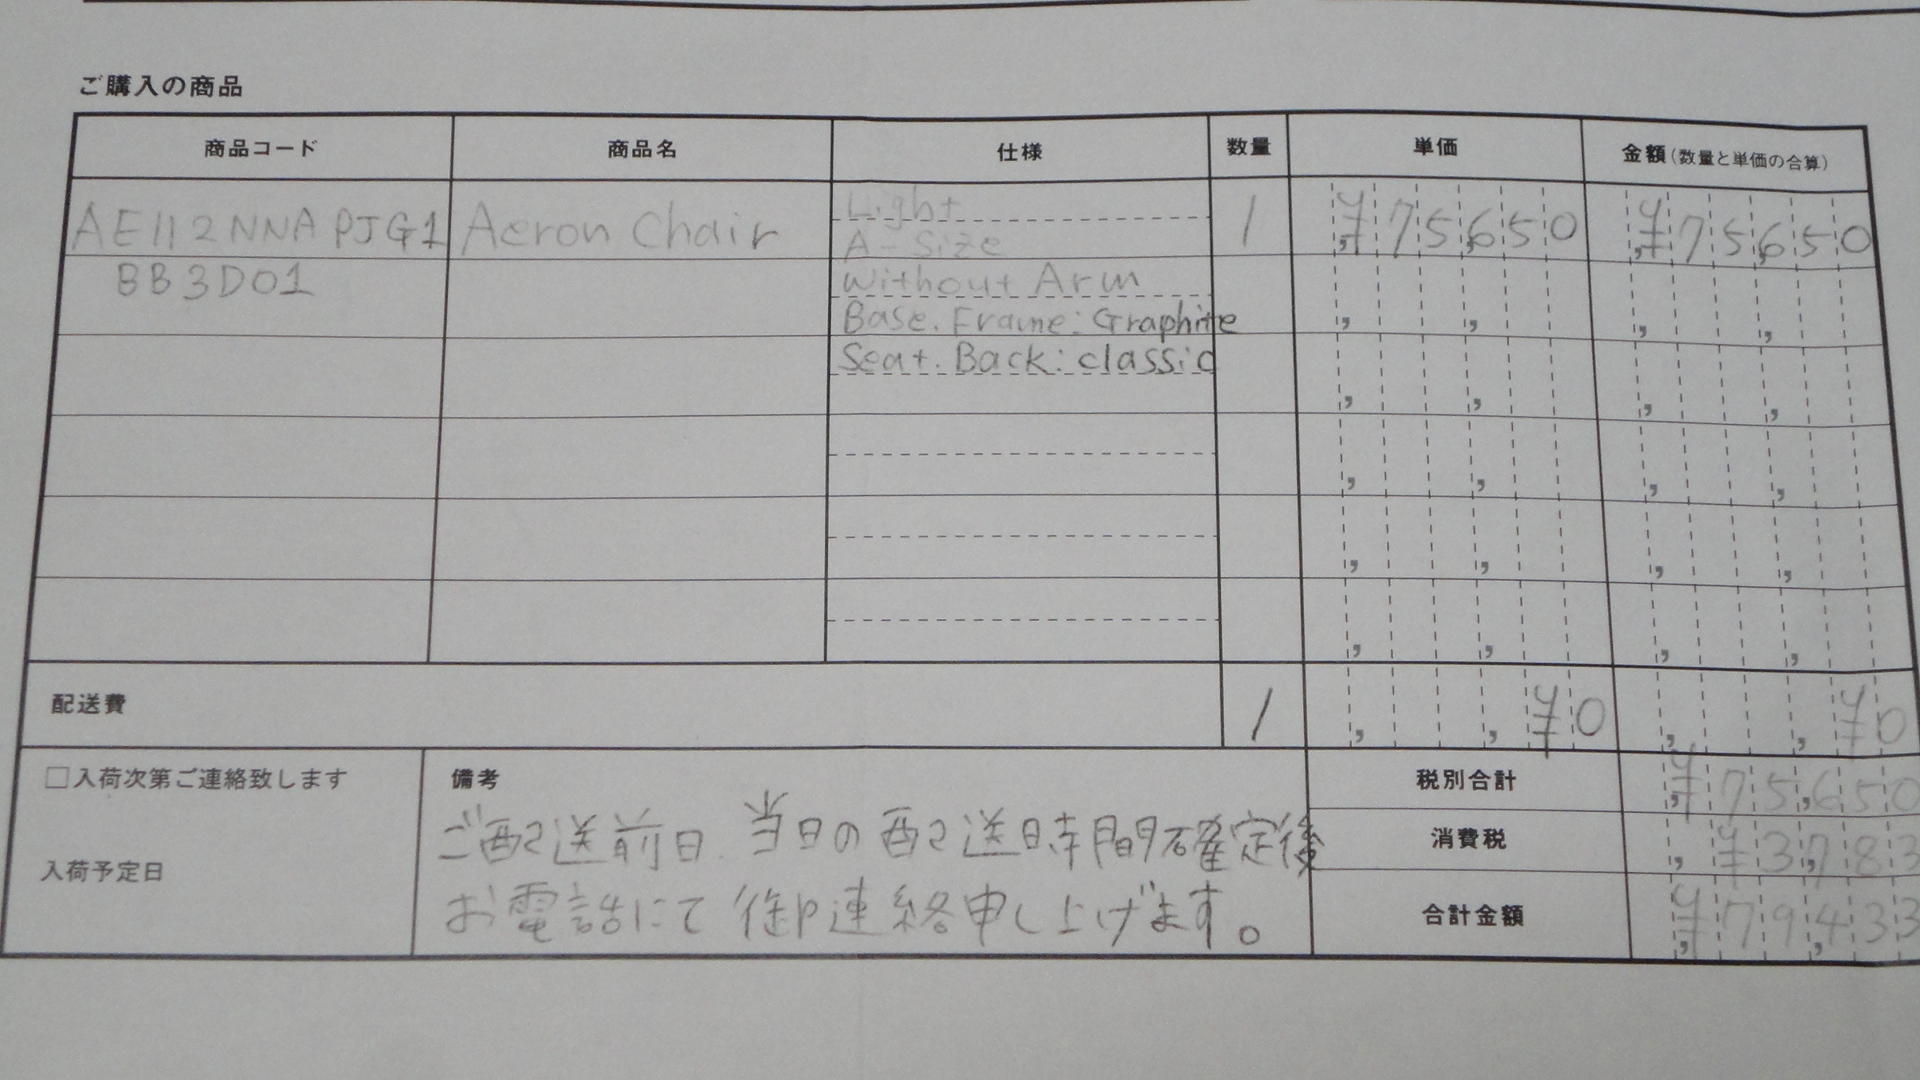 ご購入の商品
商品コード 商品名 仕様 数量 単価 金額(数量と単価の合算)
AE112NNAPJG1 Aeron Chair Light 1 ¥75,650 ¥75,650
A-Size
BB3D01 Without Arm
Base.Frame:Graphite
Seat.Back:classic
配送費 1 ¥0 ¥0
□入荷次第ご連絡致します 備考 税別合計 ¥75,650
ご配送前日、当日の配送時間確定後 消費税 ¥3,783
入荷予定日
お電話にて御連絡申し上げます。 合計金額 ¥79,433